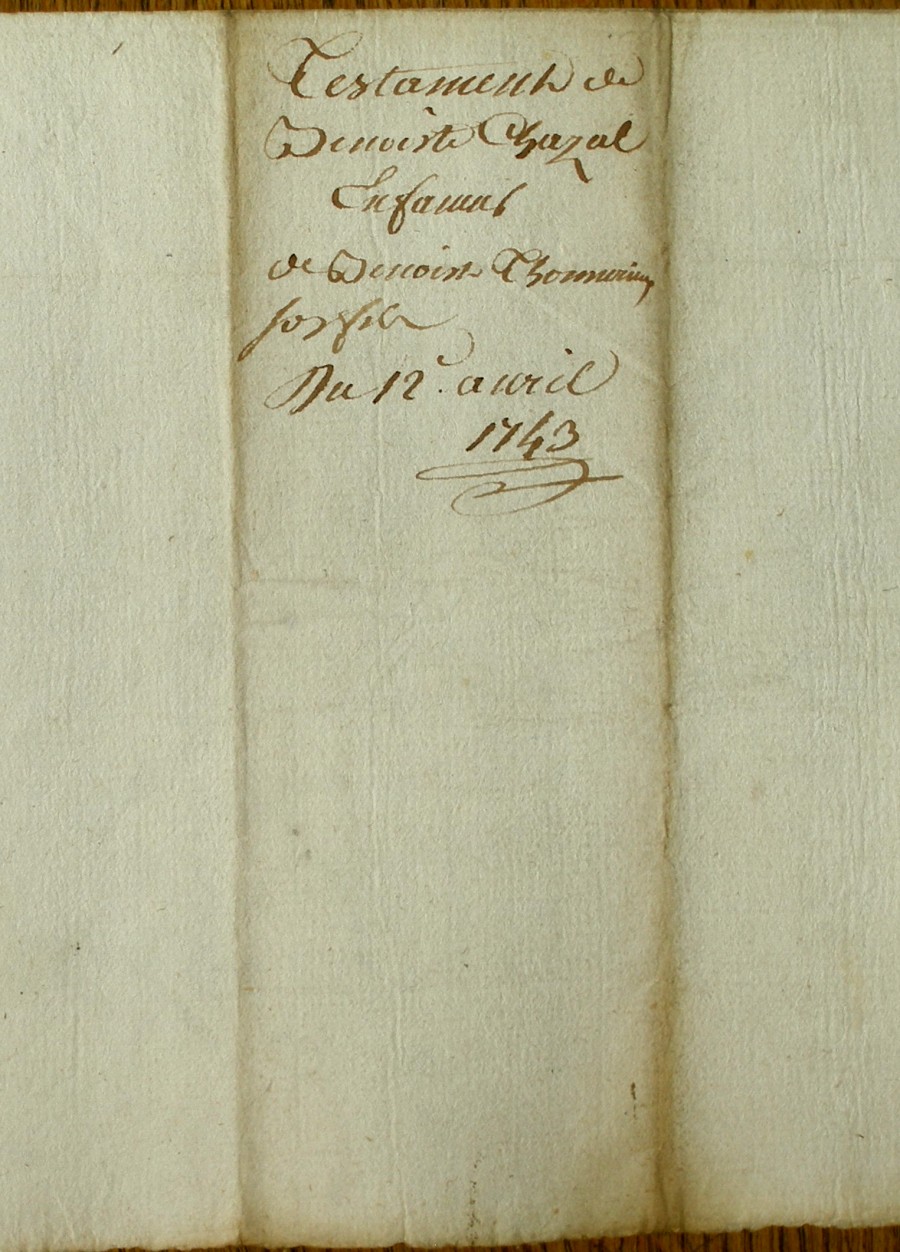 Testament de
Benoiste Chazal
En faveur
de Benoist Thonnerieu
son fils
Du 12e. avril
1743